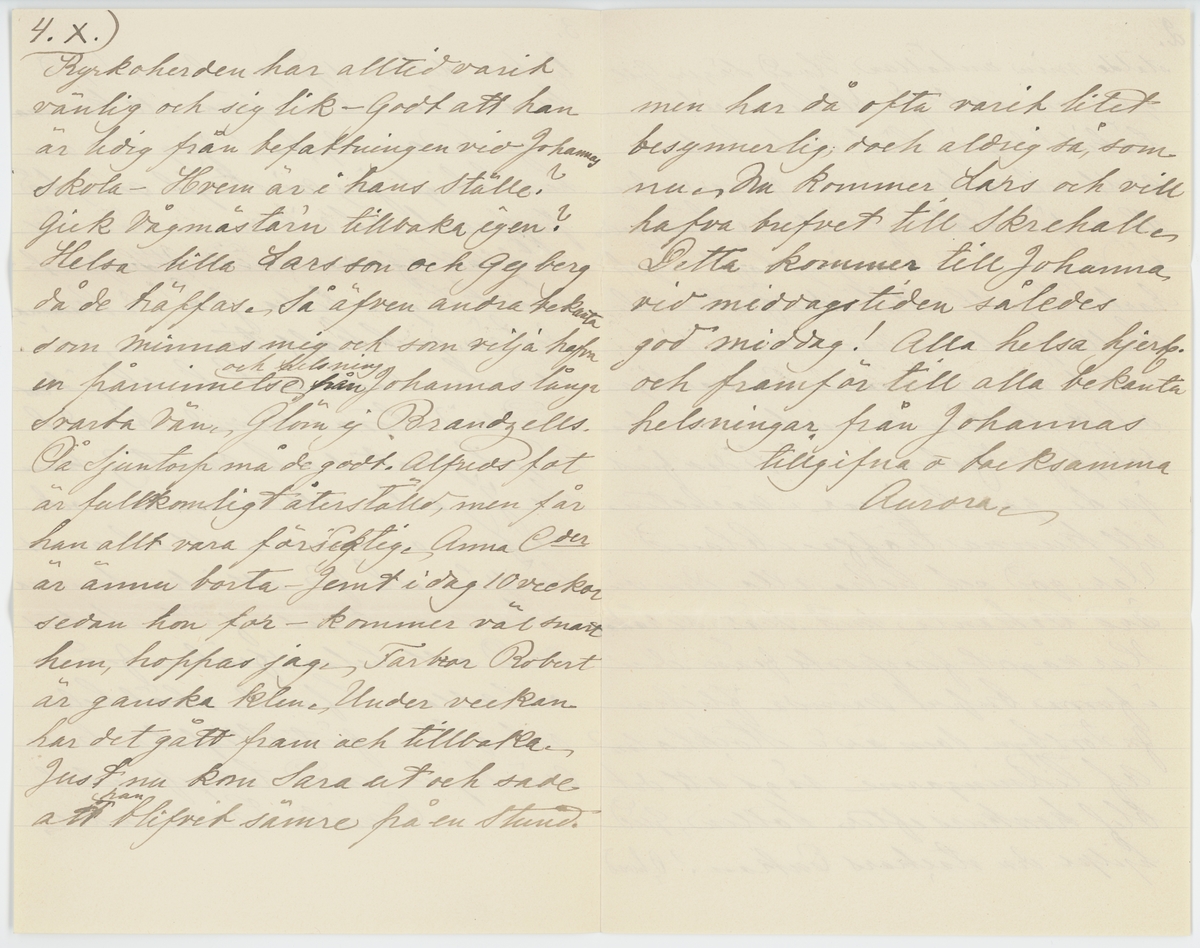 4. X.)
Kyrkoherden har alltid varit
vänlig och sig lik – Godt att han
är ledig från befattningen vid Johannes
skola – Hvem är i hans ställe?
Gick Vågmästarn tillbaka igen?
Helsa lilla Larsson och Gejberg
då de träffas. Så äfven andra bekanta
som minnas mig och som vilja hafva
en påminnelse och helsning från Johannas långa
svarta Vän. Glöm ej Brandzells.
På Sjuntorp må de godt. Alfreds fot
är fullkomligt återställd, men får
han allt vara försigtig. Anna C
är ännu borta – Jemt i dag 10 veckor
sedan hon for – kommer väl snart
hem, hoppas jag. Farbror Robert
är ganska klen. Under veckan
har det gått fram och tillbaka.
Just nu kom Sara ut och sade
att han blifvit sämre på en stund.
men har då ofta varit litet
besynnerlig, doch aldrig så, som
nu. Nu kommer Lars och vill
hafva brefvet till Skrehall.
Detta kommer till Johanna
vid middagstiden således
god middag! Alla helsa hjertl.
och framför till alla bekanta
helsningar från Johannas
tillgifna o tacksamma
Aurora.